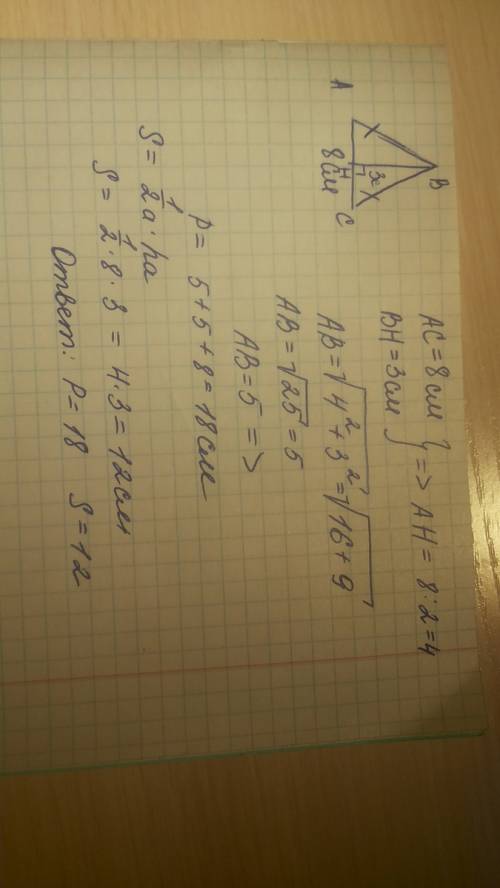 B
3
A
H
C
8 см
AC = 8 см
BH = 3 см } => AH = 8 : 2 = 4
AB = √4² + 3² = √16 + 9
AB = √25 = 5
AB = 5 =>
P = 5 + 5 + 8 = 18 см
S = 1/2 a · ha
S = 1/2 · 8 · 3 = 4 · 3 = 12 см
Ответ: P = 18 S = 12